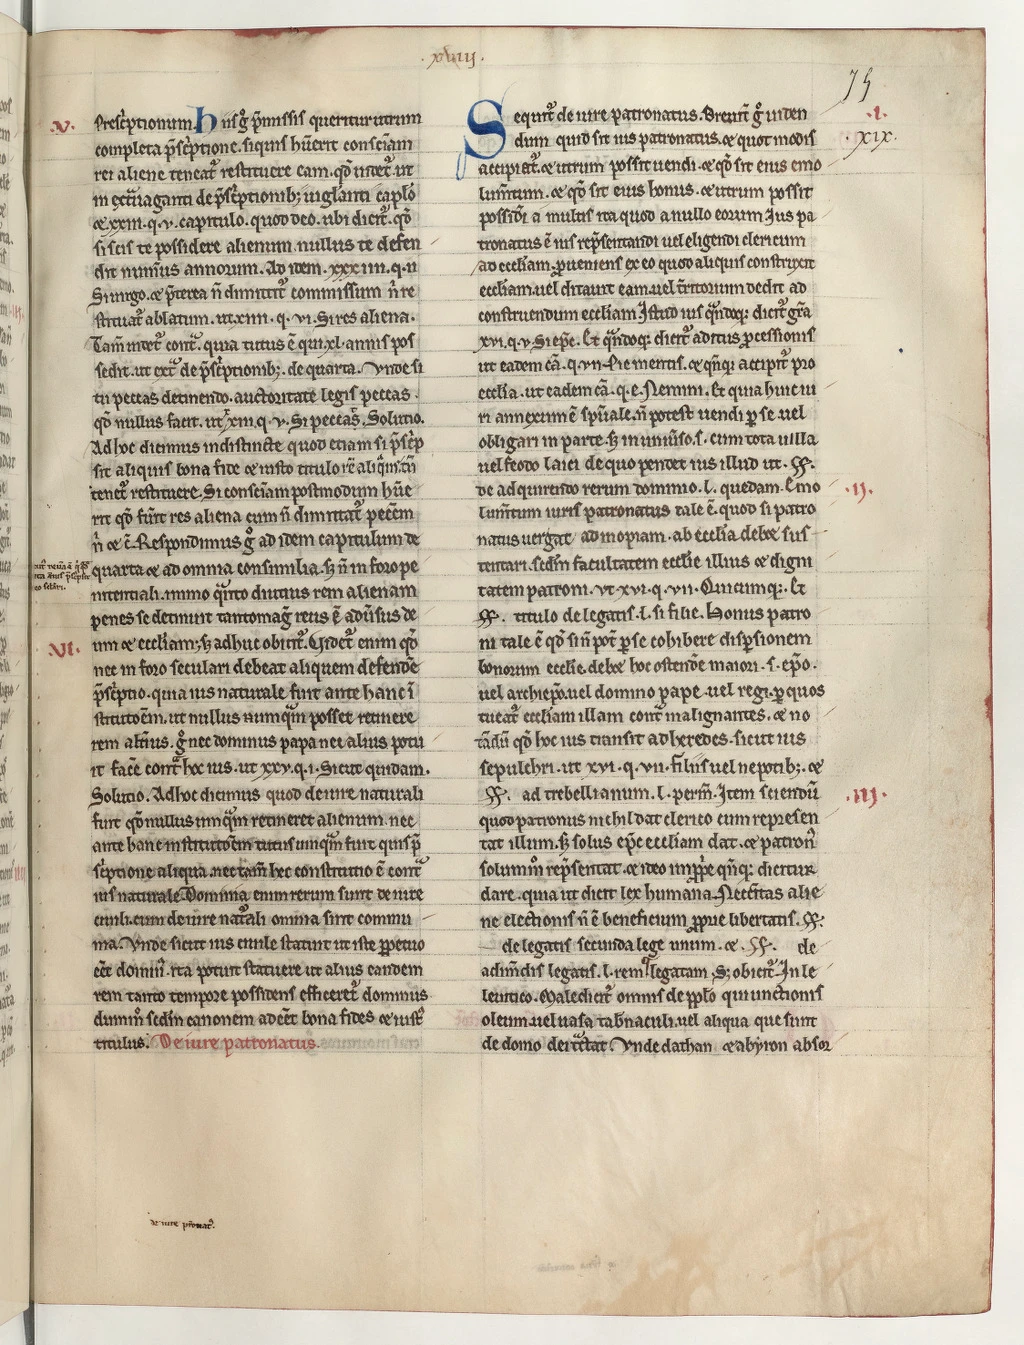 .xviij.
75
.v.
p̄sc̄ptionum. his g̊ p̄missis queritur utrum
completa p̄sc̄ptione. siquis hūerit consciam
rei aliene teneat᷑ restituere eam. qd̓ uidet᷑. ut
in ext̓uaganti de p̄sc̄ptionib; uigilanti caplo
⁊ xxiii. q. v. capitulo. quod deo. ubi dicit᷑. qd̓
si scis te possidere alienum. nullus te defen
dit nimius annorum. Ad idem. xxxiiii. q. ii
Si uirgo. ⁊ p̄terea n̄ dimittit᷑ commissum n̄ re
stituat᷑ ablatum. ut xiiii. q. vi. Si res aliena.
Tam̄ uidet᷑ cont᷑. quia tutus ē qui. xl. annis pos
sedit. ut ext᷑ de p̄sc̄ptionib;. de quarta. Vnde si
tu peccas detinendo. auctoritate legis peccas.
qd̓ nullus facit. ut xiii. q. v. Si peccas̄. Solutio.
Ad hoc dicimus indistincte quod etiam si p̄sc̄p
sit aliquis bona fide ⁊ iusto titulo rē aliq̄m. tn̄
tenet᷑ restituere. Si consciam postmodum hūe
rit qd̓ fūit res aliena cum n̄ dimittat᷑ pecc̄m
n̄ ⁊ c̄. Respondimus g̊ ad idem capitulum de
quarta ⁊ ad omnia consimilia. s; n̄ in foro pe
nitentiali. immo q̄nto diutius rem alienam
penes se detinuit tanto mag̓ reus ē adūsus de
.vi.
um ⁊ eccliam; s; adhuc obicit᷑. Videt᷑ enim qd̓
nec in foro seculari debeat aliquem defende
p̄sc̄ptio. quia ius naturale fuit ante hanc ī
stitutoēm. ut nullus numq̄m posset retinere
rem alt̓ius. g̊ nec dominus papa nec alius potu
it face cont᷑ hoc ius. ut xxv. q. i. Sicut quidam.
Solutio. Ad hoc dicimus quod de iure naturali
fuit qd̓ nullus umq̄m retineret alienum. nec
ante hanc institutoēm tutus umq̄m fuit quis p̄
sc̄ptione aliqua. nec tam̄ hec constitutio ē cont᷑
ius naturale. Domina enim rerum sunt de iure
ciuili. cum de iure nat᷑ali omnia sint commu
nia. Vnde sicut ius ciuile statuit ut iste p̱petuo
eēt domin̄. ita potuit statuere ut alius eandem
rem tanto tempore possidens efficeret᷑ dominus
dum̄m sedm̄ canonem adeēt bona fides ⁊ iust᷑
titulus. De iure patronatus.
de iure pronat᷑.
.i.
.xix.
Sequit᷑ de iure patronatus. Breuit᷑ g̊ uiden
dum quid sit ius patronatus. ⁊ quot modis
accipiat᷑. ⁊ utrum possit uendi. ⁊ qd̓ sit eius emo
lum̄tum. ⁊ qd̓ sit eius honus. ⁊ utrum possit
possidi a multis ita quod a nullo eorum. Jus pa
tronatus ē ius rep̄sentandi uel eligendi clericum
ad eccliam. p̱ueniens ex eo quod aliquis construxit
eccliam. uel ditauit eam. uel t̓ritorium dedit ad
construendum eccliam. Istud ius q̄ndoq; dicit᷑ gr̄a
xvi. q. v. Si ep̄c. Et q̄ndoq; dicit᷑ aditus p̱cessionis
ut eadem cā. q. vii. Pie mentis. ⁊ q̄nq; accipit᷑ pro
ecclia. ut eadem cā. q. e. Nemini. Et quia huic iu
ri annexum ē sp̄uale. n̄ potest uendi p̱ se. uel
obligari in parte. s; in uniūso. s. cum tota uilla
uel feodo laici de quo pendet ius illud ut. ff.
de adquirendo rerum dominio. l. quedam. Emo
.ii.
lum̄tum iuris patronatus tale ē. quod si patro
natus uergat ad inopiam. ab ecclia debet sus
tentari. sedm̄ facultatem ecclie illius ⁊ digni
tatem patroni. ut xvi. q. vii. Quicumq;. Et
ff. titulo de legatis. l. si filie. Honus patro
ni tale ē qd̓ sin̄ pot̄ p̱ se cohibere disp̱sionem
bonorum ecclie. debet hoc ostende maiori. s. ep̄o.
uel archiep̄o. uel domino pape. uel regi. p̱ quos
tueat᷑ eccliam illam cont᷑ malignantes. ⁊ no
tādū qd̓ hoc ius transit ad heredes. sicut ius
sepulchri. ut xvi. q. vii. filiis uel nepotib;. ⁊
ff. ad trebellianum. l. perm̄. Item sciendū
.iii.
quod patronus nichil dat clerico cum represen
tat illum. s; solus ep̄c eccliam dat. ⁊ patron̄
solumm̄ rep̄sentat. ⁊ ideo imp̱p̄e q̄nq; dicitur
dare. quia ut dicit lex humana. Necc̄itas alie
ne electionis n̄ ē beneficium p̱prie libertatis. ff.
de legatis secunda lege unum. ⁊. ff. de
adim̄dis legatis. l. rem legatam. S; obicit᷑. In le
leuitico. Maledicit᷑ omnis de pp̄lo qui unctionis
oleum. uel uasa tab̄naculi. uel aliqua que sunt
de domo dei t᷑ctat. Vnde dathan ⁊ abyron absor